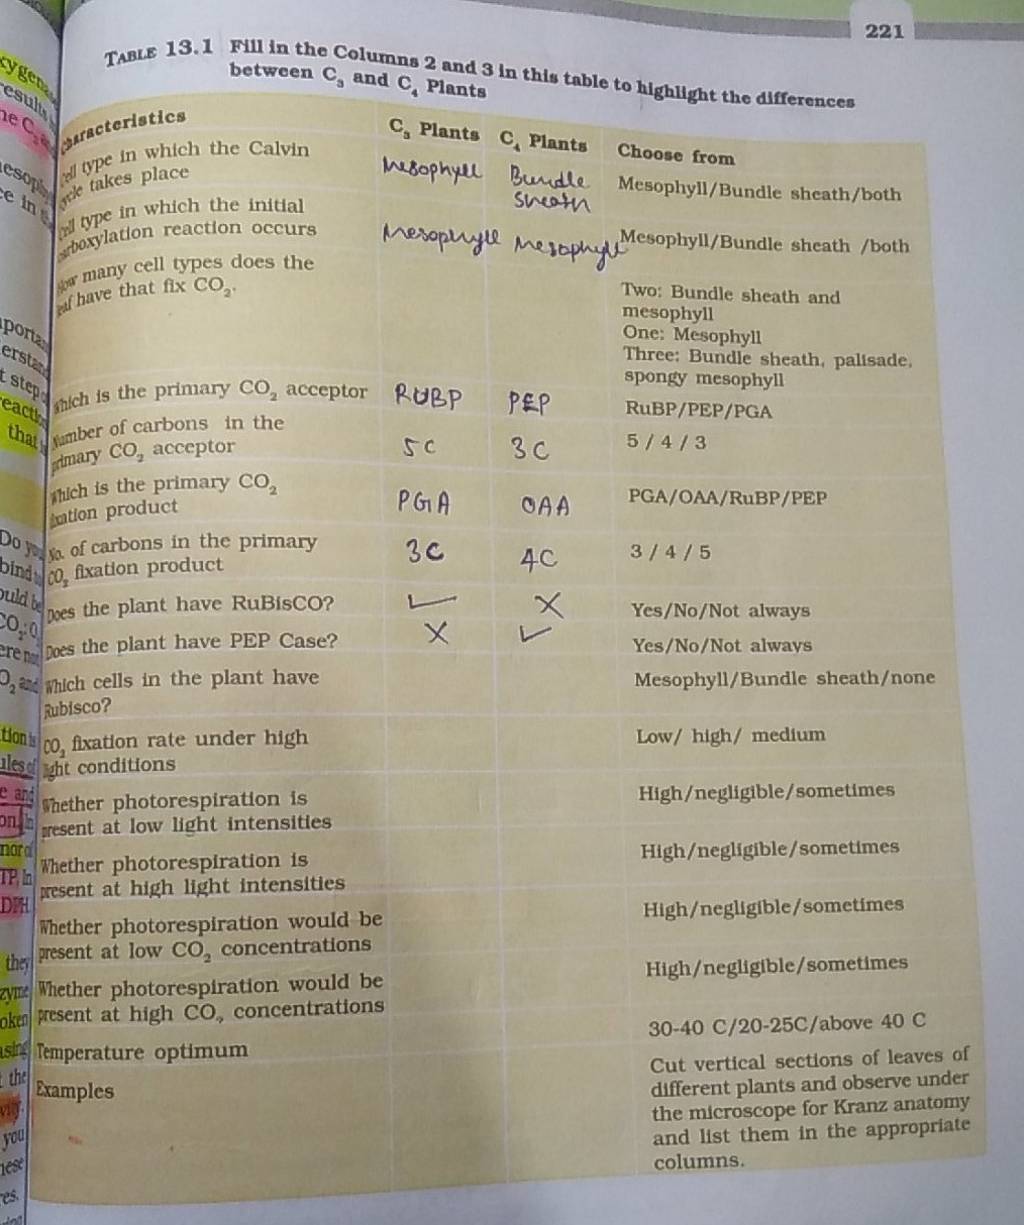 221
TABLE 13.1 Fill in the Columns 2 and 3 in this table to highlight the differences
between C₃ and C₄ Plants
Characteristics C₃ Plants C₄ Plants Choose from
Cell type in which the Calvin
cycle takes place Mesophyll Bundle Sheath Mesophyll/Bundle sheath/both
Cell type in which the initial
carboxylation reaction occurs Mesophyll Mesophyll Mesophyll/Bundle sheath /both
How many cell types does the
leaf have that fix CO₂.
Two: Bundle sheath and
mesophyll
One: Mesophyll
Three: Bundle sheath, palisade,
spongy mesophyll
Which is the primary CO₂ acceptor RUBP PEP RuBP/PEP/PGA
Number of carbons in the
primary CO₂ acceptor 5C 3C 5 / 4 / 3
Which is the primary CO₂
fixation product PGA OAA PGA/OAA/RuBP/PEP
No. of carbons in the primary
CO₂ fixation product 3C 4C 3 / 4 / 5
Does the plant have RuBisCO? ✓ X Yes/No/Not always
Does the plant have PEP Case? X ✓ Yes/No/Not always
Which cells in the plant have Mesophyll/Bundle sheath/none
Rubisco?
CO₂ fixation rate under high Low/ high/ medium
light conditions
Whether photorespiration is High/negligible/sometimes
present at low light intensities
Whether photorespiration is High/negligible/sometimes
present at high light intensities
Whether photorespiration would be High/negligible/sometimes
present at low CO₂ concentrations
Whether photorespiration would be High/negligible/sometimes
present at high CO₂ concentrations
Temperature optimum 30-40 C/20-25C/above 40 C
Examples Cut vertical sections of leaves of
different plants and observe under
the microscope for Kranz anatomy
and list them in the appropriate
columns.